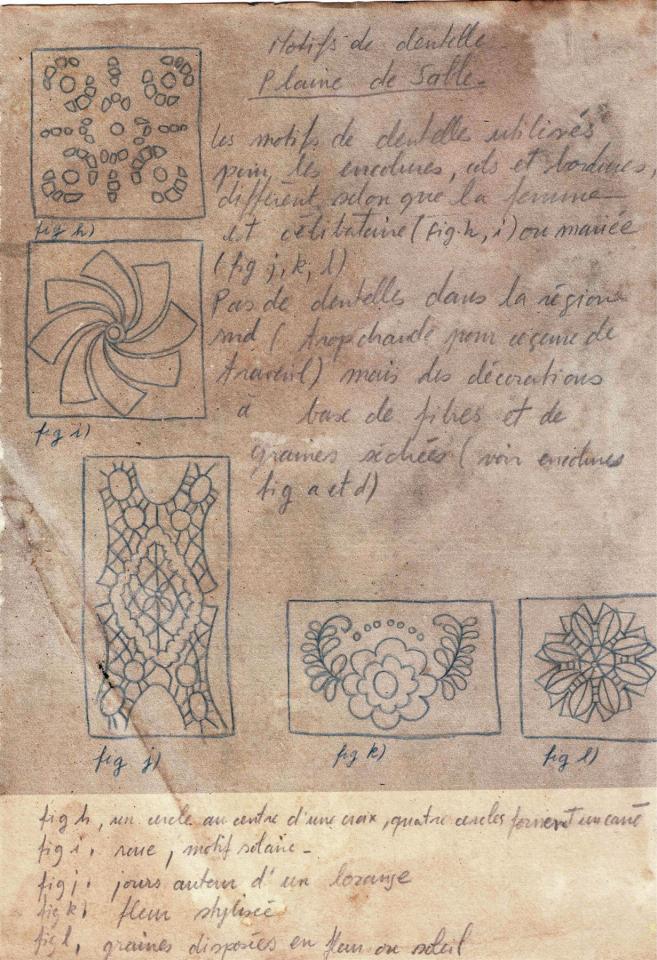 Motifs de dentelle
Plaine de Salle-
Les motifs de dentelles utilisés
pour les encolures, cols et bordures,
différent, selon que la femme
est célibataire (fig. h, i) ou mariée
(fig j, k, l)
Pas de dentelles dans la région
sud (trop chaude pour ce genre de
travail) mais des décorations
à base de fibres et de
graines séchées (voir encolures
fig a et d)
fig h)
fig i)
fig j)
fig k)
fig l)
fig h, un cercle au centre d'une croix, quatre cercles forment un carré
fig i, roue, motif solaire-
fig j, jours autour d'un losange
fig k, fleur stylisée
fig l, graines disposées en fleur ou soleil